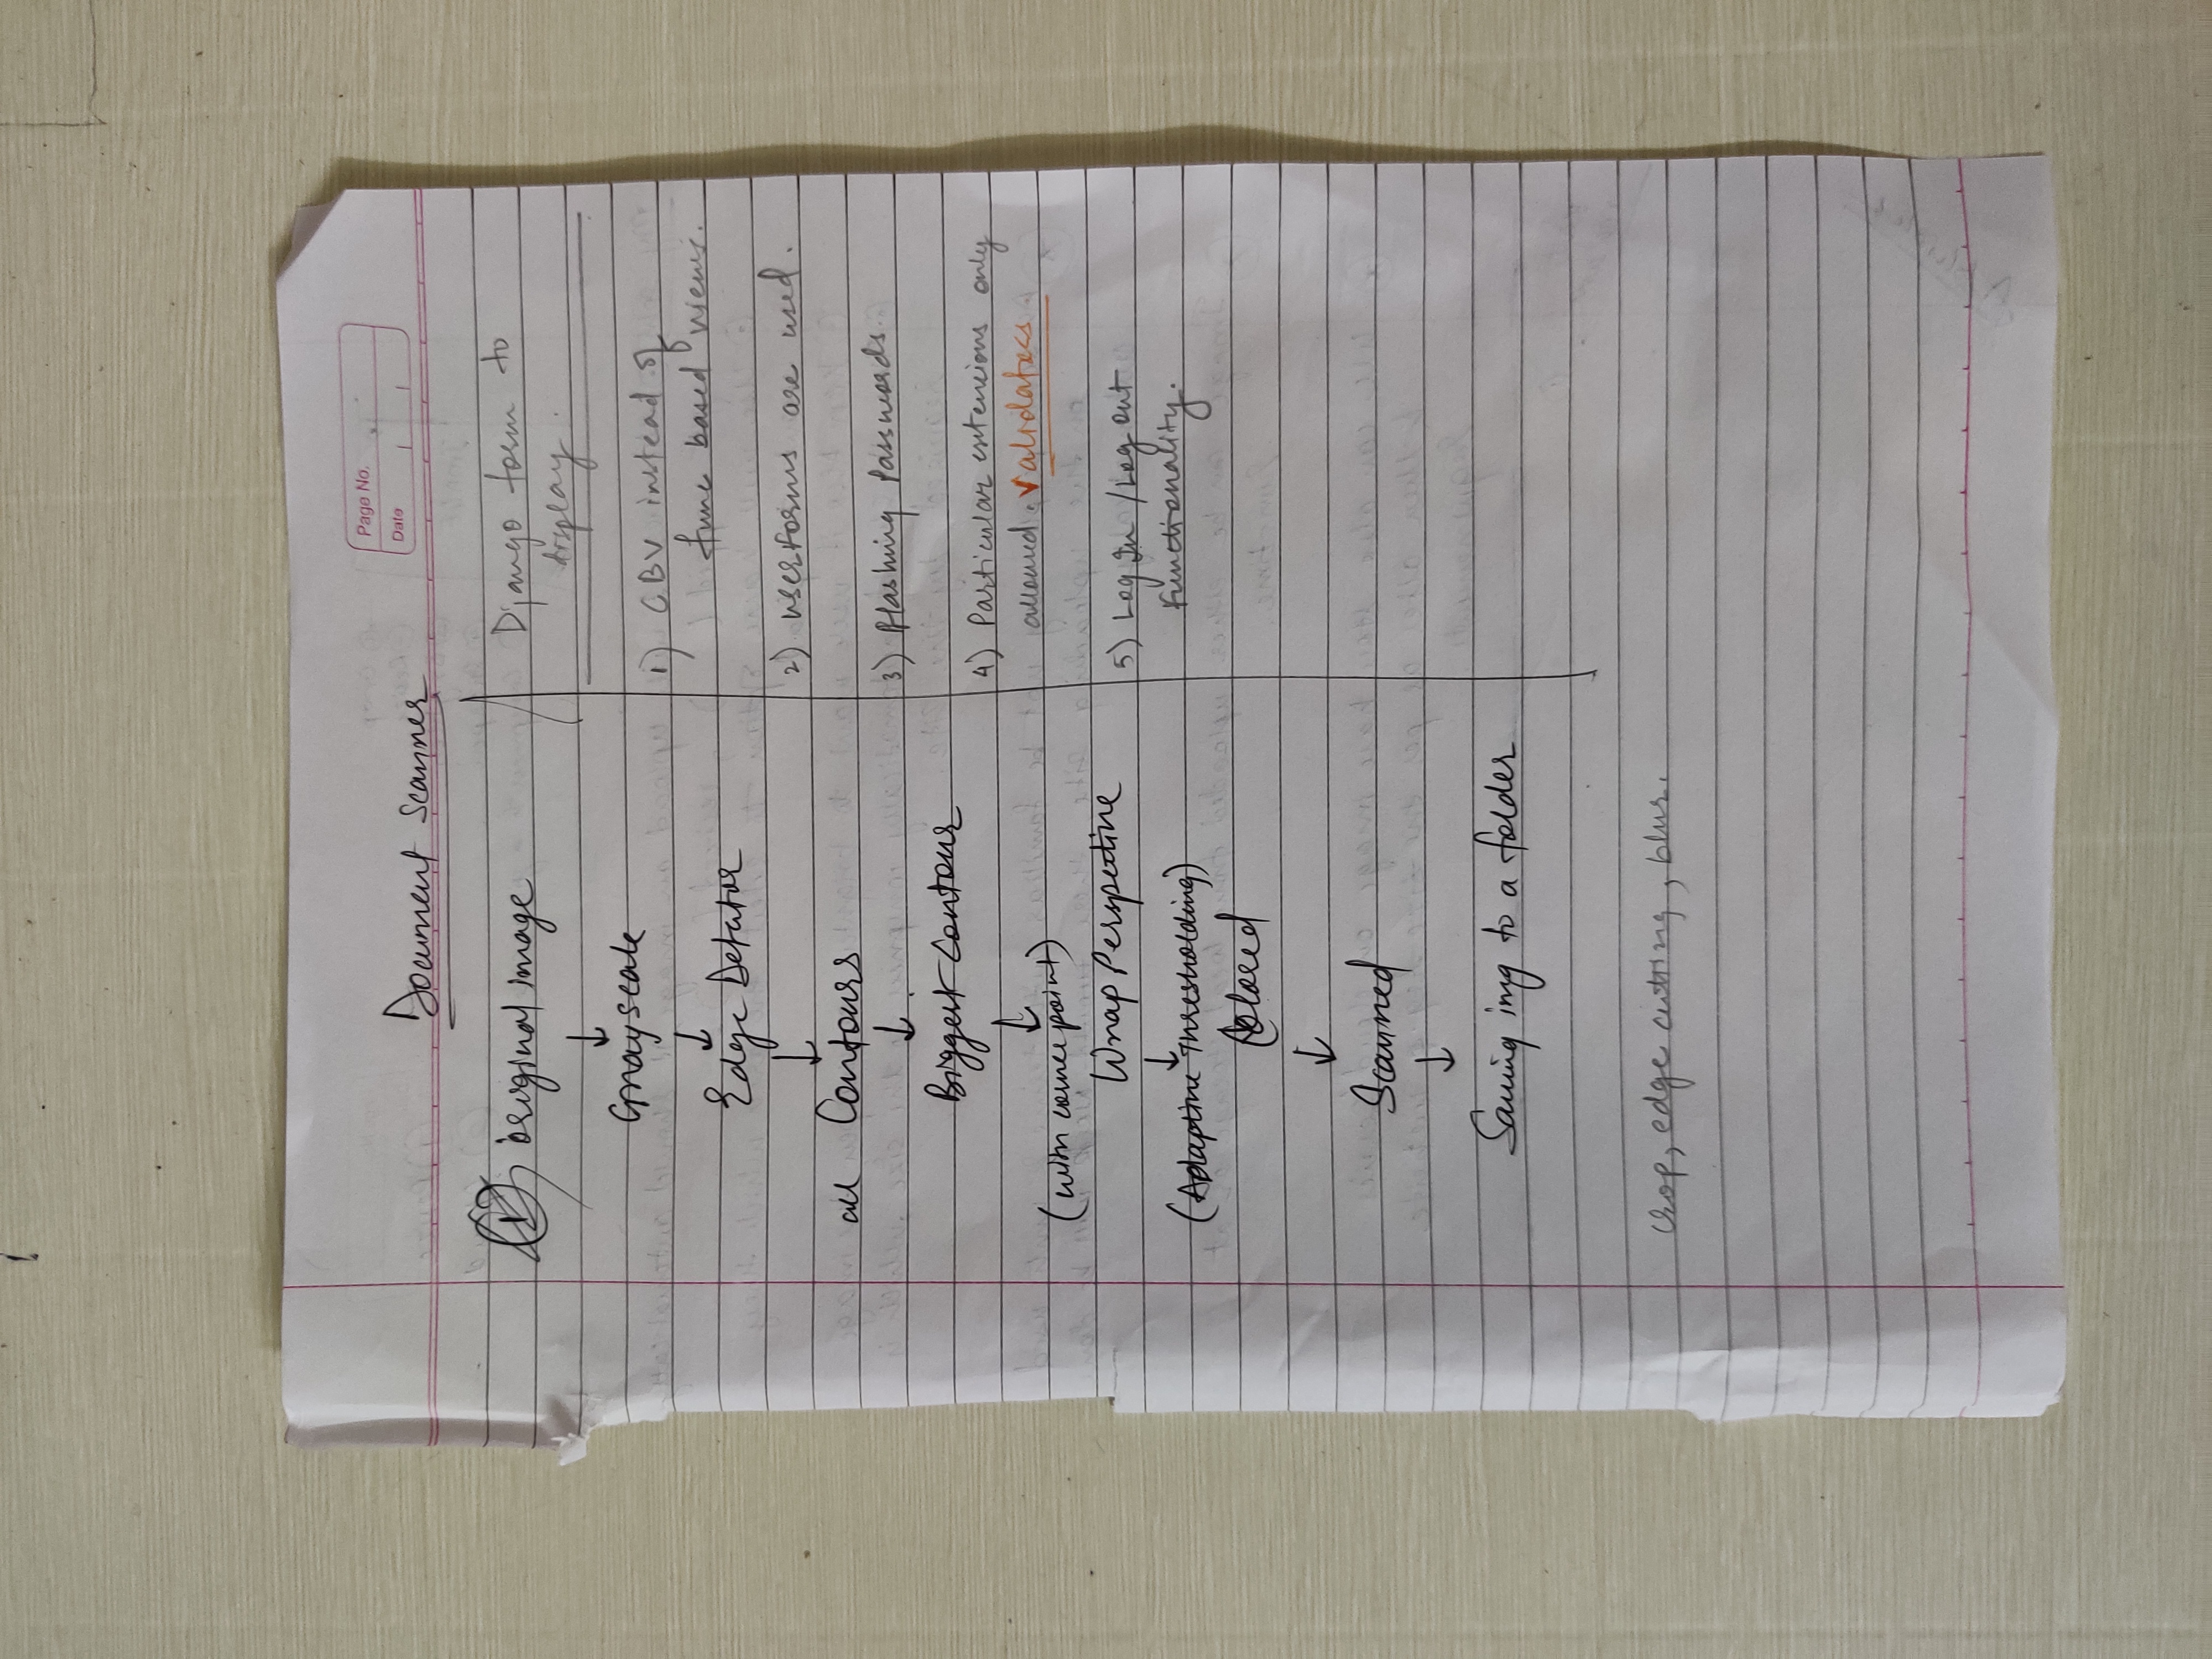 Page No.
Date
Document Scanner
original image
↓
Grayscale
↓
Edge Detator
↓
all Contours
↓
Biggest Contour
↓
(with corner point)
Wrap Perspective
↓
(Adaptive Thresholding)
Colored
↓
Scanned
↓
Saving img to a folder
crop, edge cutting, blur.
Django form to
display.
1) CBV instead of
func based views.
2) userforms are used.
3) Hashing Passwords.
4) Particular extencions only
allowed. Validators.
5) Log In / Log out
Functionality.